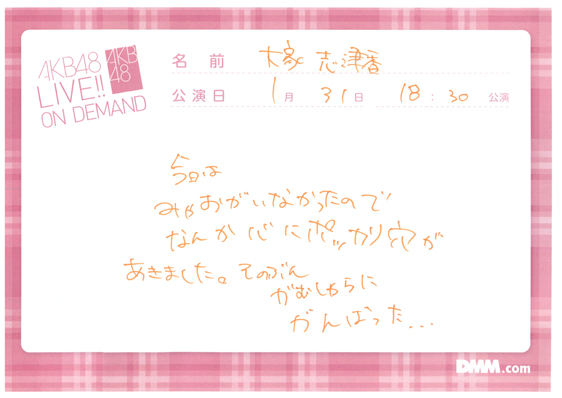 AKB48
LIVE!!
ON DEMAND
AKB
48
名前 大家志津香
公演日 1月31日 18:30 公演
今日は
みゃおがいなかったので
なんか心にポッカリ穴が
あきました。そのぶん
がむしゃらに
がんばった...
DMM.com